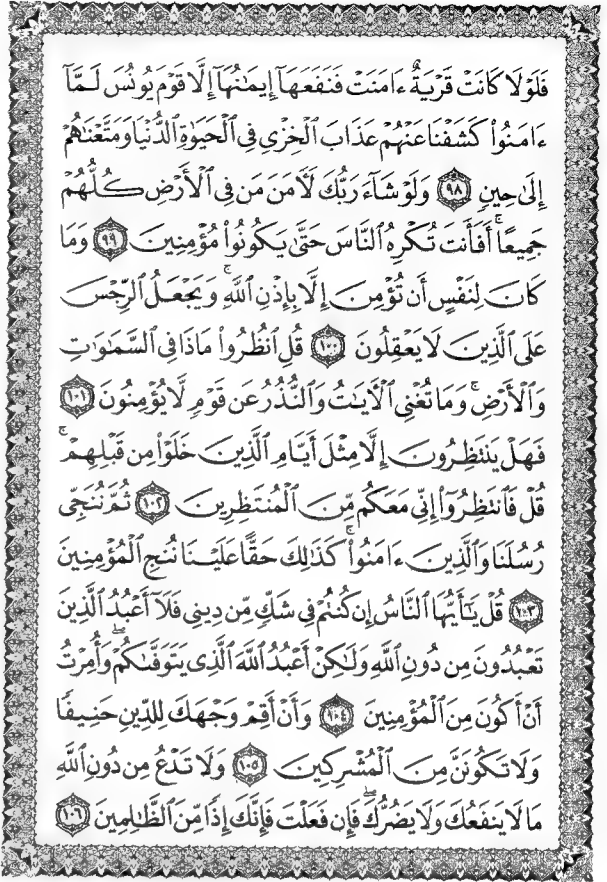 فَلَوۡلَا كَانَتۡ قَرۡيَةٌ ءَامَنَتۡ فَنَفَعَهَآ إِيمَٰنُهَآ إِلَّا قَوۡمَ يُونُسَ لَمَّآ
ءَامَنُواْ كَشَفۡنَا عَنۡهُمۡ عَذَابَ ٱلۡخِزۡيِ فِي ٱلۡحَيَوٰةِ ٱلدُّنۡيَا وَمَتَّعۡنَٰهُمۡ
إِلَىٰ حِينٖ ٩٨ وَلَوۡ شَآءَ رَبُّكَ لَأٓمَنَ مَن فِي ٱلۡأَرۡضِ كُلُّهُمۡ
جَمِيعًاۚ أَفَأَنتَ تُكۡرِهُ ٱلنَّاسَ حَتَّىٰ يَكُونُواْ مُؤۡمِنِينَ ٩٩ وَمَا
كَانَ لِنَفۡسٍ أَن تُؤۡمِنَ إِلَّا بِإِذۡنِ ٱللَّهِۚ وَيَجۡعَلُ ٱلرِّجۡسَ
عَلَى ٱلَّذِينَ لَا يَعۡقِلُونَ ١٠٠ قُلِ ٱنظُرُواْ مَاذَا فِي ٱلسَّمَٰوَٰتِ
وَٱلۡأَرۡضِۚ وَمَا تُغۡنِي ٱلۡأٓيَٰتُ وَٱلنُّذُرُ عَن قَوۡمٖ لَّا يُؤۡمِنُونَ ١٠١
فَهَلۡ يَنتَظِرُونَ إِلَّا مِثۡلَ أَيَّامِ ٱلَّذِينَ خَلَوۡاْ مِن قَبۡلِهِمۡۚ
قُلۡ فَٱنتَظِرُوٓاْ إِنِّي مَعَكُم مِّنَ ٱلۡمُنتَظِرِينَ ١٠٢ ثُمَّ نُنَجِّي
رُسُلَنَا وَٱلَّذِينَ ءَامَنُواْۚ كَذَٰلِكَ حَقًّا عَلَيۡنَا نُنجِ ٱلۡمُؤۡمِنِينَ
١٠٣ قُلۡ يَٰٓأَيُّهَا ٱلنَّاسُ إِن كُنتُمۡ فِي شَكّٖ مِّن دِينِي فَلَآ أَعۡبُدُ ٱلَّذِينَ
تَعۡبُدُونَ مِن دُونِ ٱللَّهِ وَلَٰكِنۡ أَعۡبُدُ ٱللَّهَ ٱلَّذِي يَتَوَفَّىٰكُمۡۖ وَأُمِرۡتُ
أَنۡ أَكُونَ مِنَ ٱلۡمُؤۡمِنِينَ ١٠٤ وَأَنۡ أَقِمۡ وَجۡهَكَ لِلدِّينِ حَنِيفٗا
وَلَا تَكُونَنَّ مِنَ ٱلۡمُشۡرِكِينَ ١٠٥ وَلَا تَدۡعُ مِن دُونِ ٱللَّهِ
مَا لَا يَنفَعُكَ وَلَا يَضُرُّكَۖ فَإِن فَعَلۡتَ فَإِنَّكَ إِذٗا مِّنَ ٱلظَّٰلِمِينَ ١٠٦